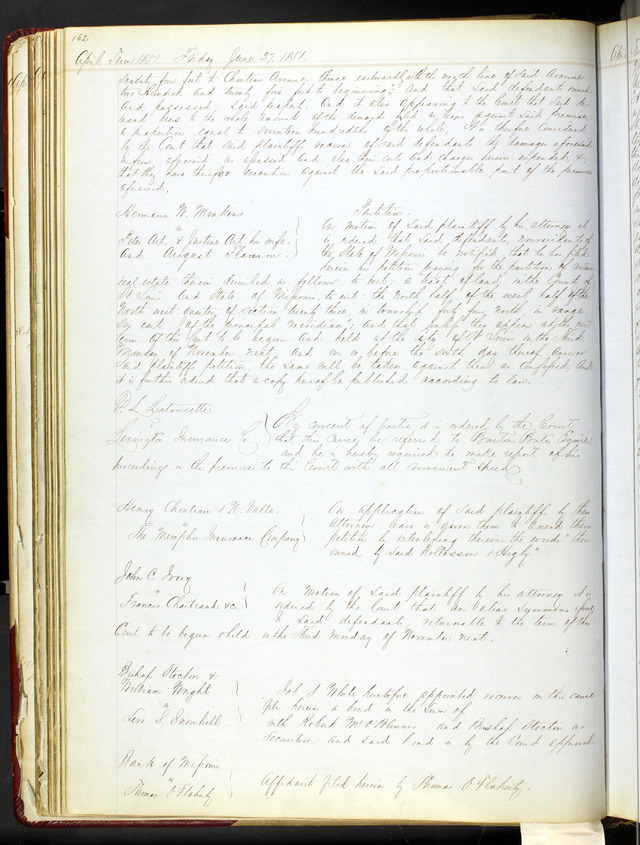 162
April Term 1851. Friday June 27. 1851.
Seventy four feet to Chouteau Avenue, thence eastwardly with the north line of said Avenue
two Hundred and twenty five feet to beginning." And that said defendants owned
and possessed said property. And it also appearing to the Court that said de-
mand bears to the whole amount of the demand a lien against said premises
a proportion equal to seventeen hundredths of the whole. It is therefore considered
by the Court that said plaintiff recover of said defendants the damages aforesaid
in form aforesaid as assessed and also their costs and charges herein expended, &
that they have therefor execution against the said proportionable part of the premises
aforesaid.
Hermann W. Menkens
vs
Peter Art, & Justine Art his wife,
and August Flamm.
Partition.
On motion of said plaintiff by his attorney it
is ordered that said defendants, nonresidents of
the State of Missouri be notified, that he has filed
herein his petition praying for the partition of certain
real estate therein described as follows to wit: a tract of land, in the County of
St Louis and State of Missouri, to wit: the North half of the west half of the
North west quarter of section twenty three, in township forty four, north, in range
six east of the principal meridian; and that unless they appear at the next
term of this Court to be begun and held at the city of St Louis on the third
Monday of November next, and on or before the sixth day thereof answer
said plaintiffs petition, the same will be taken against them as confessed, and
it is further ordered that a copy hereof be published according to law.
D. L. Latourette
vs
Lexington Insurance Co
By consent of parties it is ordered by the Court
that this Cause, be referred to Esquire
and he is hereby required to make report of his
proceedings in the premises to this Court with all convenient speed
Henry Chouteau & N. Valle
vs
The Memphis Insurance Company
On application of said plaintiffs by their
Attorney leave is given them to amend their
petition by interlining therein the words "then
owned by said &
John C. Ivory
vs
Francis Chartrand &c
On motion of said plaintiff by his attorney it is
ordered by the Court that an alias Summons issue
to said defendants, returnable to the term of this
Court to be begun & held on the third Monday of November next.
Bishop Stockton &
William Wright
vs
Levi S. Snowhill
Job S White heretofore appointed receiver in this cause
files herein a bond in the sum of
with Robert and Bishop Stockton as
Securities, and said bond is by the Court approved
Bank of Missouri
vs
Thomas O'Flaherty
Affidavit filed herein by Thomas O'Flaherty.